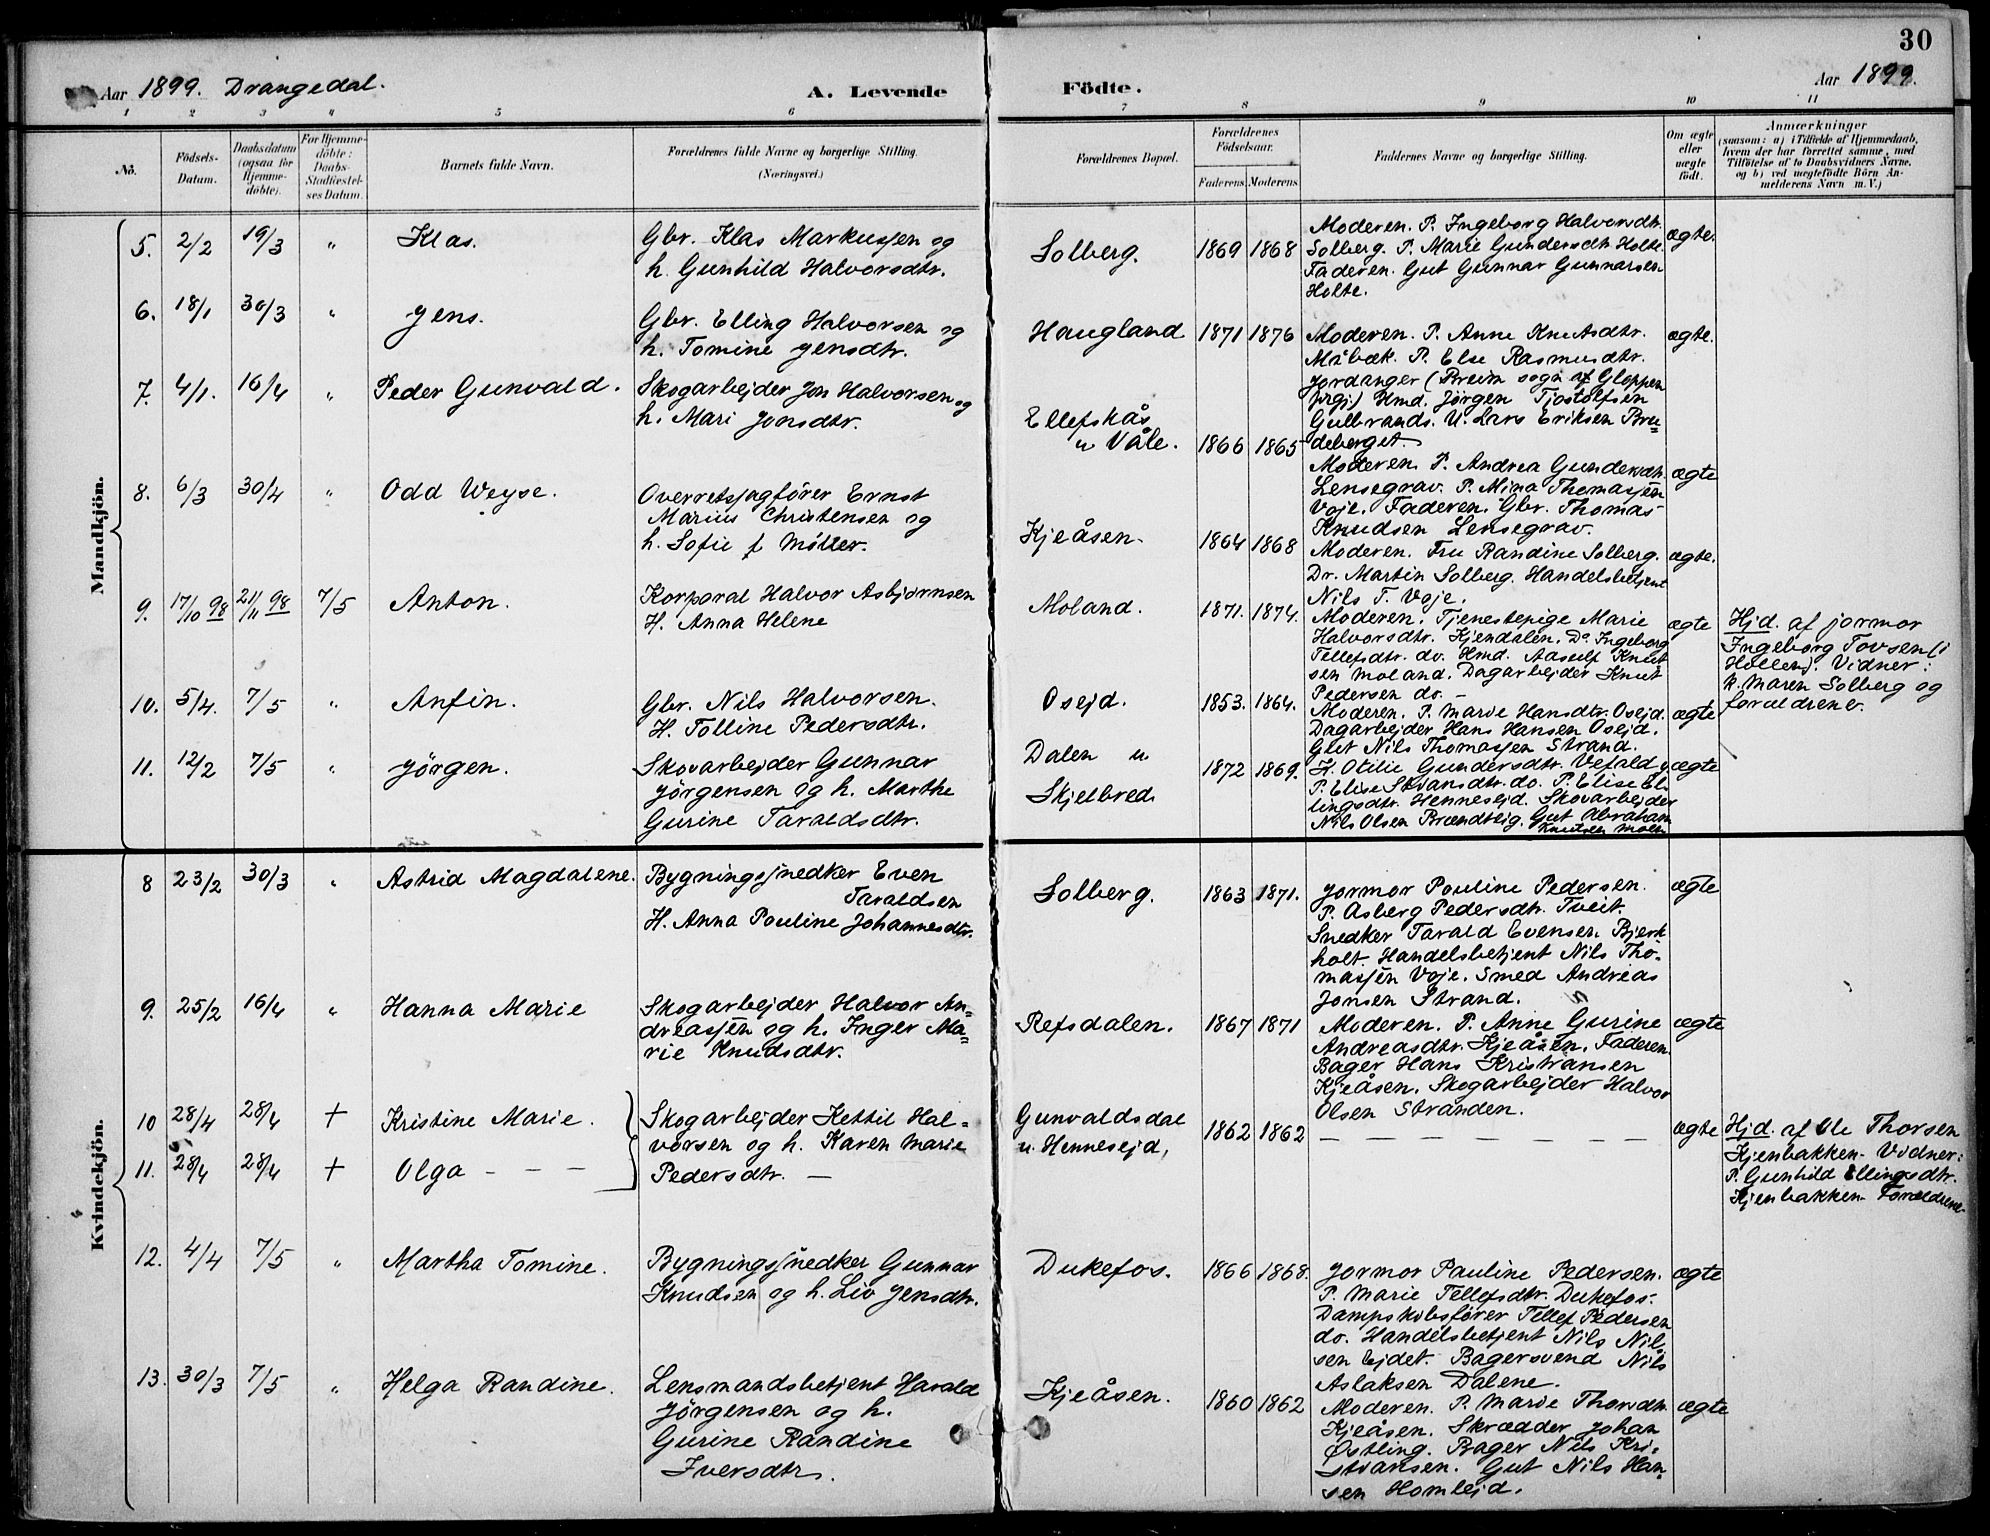 30
Aar 1899. Drangedal.
A. Levende
Födte.
Aar 1899.
1 2 3 4 5 6 7 8 9 10 11
No.
Födsels-
Datum.
Daabsdatum
(ogsaa for
Hjemme-
döbte).
For Hjemme-
döbte:
Daabs-
Stadfæstel-
ses Datum.
Barnets fulde Navn.
Forældrenes fulde Navne og borgerlige Stilling.
(Næringsvei.)
Forældrenes Bopæl.
Forældrenes
Födselsaar.
Faderens Moderens
Faddernes Navne og borgerlige Stilling.
Om ægte
eller
uægte
födt.
Anmærkninger
(saasom: a) i Tilfælde af Hjemmedaab,
hvem der har forrettet samme, med
Tilföielse af to Daabsvidners Navne,
og b) ved uægtefödte Börn An-
melderens Navn m. V.)
Mandkjön.
5. 2/2 19/3 " Klas.
Gbr. Klas Markussen og
h. Gunhild Halvorsdtr.
Solberg. 1869 1868
Moderen. P. Ingeborg Halvorsdtr.
Solberg. P. Marie Gundersdtr. Holte.
Faderen. Gut Gunnar Gunnarsen
Holte.
ægte.
6. 18/1 30/3 " Jens.
Gbr. Elling Halvorsen og
h. Tomine Jensdtr.
Haugland 1871 1876
Moderen. P. Anne Knutsdtr.
Måbæk. P. Else Rasmusdtr.
Jordanger (Breim sogn af Gloppen
prgj.) Hmd. Jørgen Tjostolfsen
Gulbrands. U. Lars Eriksen Bru-
deberget.
ægte.
7. 4/1. 16/4 " Peder Gunvald.
Skogarbejder Jon Halvorsen og
h. Mari Jonsdtr.
Ellefskås
u Våle. 1866 1865
Moderen. P. Andrea Gundersdtr.
Lensegrav. P. Mina Thomassen
Voje. Faderen. Gbr. Thomas
Knudsen Lensegrav.
ægte
8. 6/3 30/4 " Odd Weyse.
Overretssagfører Ernst
Marius Christensen og
h. Sofie f Møller.
Kjeåsen. 1864 1868
Moderen. Fru Randine Solberg.
Dr. Martin Solberg. Handelsbetjent
Nils T. Voje.
ægte.
9. 17/10 98 21/11 98 7/5 Anton.
Korporal Halvor Asbjørnsen
H. Anna Helene
Moland. 1871. 1874.
Moderen. Tjenestepige Marie
Halvorsdtr. Kjendalen. Do Ingeborg
Tellefsdtr. do. Hmd. Aasulf Knut
sen Moland. Dagarbejder Knut
Pedersen do. –
ægte
Hjd. af jormor
Ingeborg Tovsen (i
Hollen). Vidner:
k. Maren Solberg og
forældrene.
10. 5/4. 7/5 " Anfin.
Gbr. Nils Halvorsen.
H. Tolline Pedersdtr.
Osejd. 1853. 1864.
Moderen. P. Marie Hansdtr. Osejd.
Dagarbejder Hans Hansen Osejd.
Gut Nils Thomassen Strand.
ægte
11. 12/2 7/5 " Jörgen.
Skovarbejder Gunnar
Jörgensen og h. Marthe
Gurine Taraldsdtr.
Dalen u
Skjelbred. 1872 1869.
K. Otilie Gundersdtr. Vefald.
P. Elise Stiansdtr. do. P. Elise El-
lingsdtr. Hennesejd. Skovarbejder
Nils Olsen Brændteig. Gut Abraham
Knutsen Moen
ægte
Kvindekjön.
8 23/2 30/3 " Astrid Magdalene.
Bygningssnedker Even
Taraldsen
H. Anna Pouline Johannesdtr.
Solberg. 1863 1871.
Jormor Pouline Pedersen.
P. Asberg Pedersdtr. Tveit.
Snedker Tarald Evensen. Bjerk
holt. Handelsbetjent Nils Tho-
massen Voje. Smed Andreas
Jonsen Strand.
ægte
9. 25/2 16/4 " Hanna Marie
Skogarbejder Halvor An-
dreassen og h. Inger Ma-
rie Knudsdtr.
Refsdalen. 1867 1871
Moderen. P. Anne Gurine
Andreasdtr. Kjeåsen. Faderen.
Bager Hans Kristiansen
Kjeåsen. Skogarbejder Halvor
Olsen Stranden.
ægte
10 28/4 28/4 + Kristine Marie.
11. 28/4 28/4 + Olga – – –
Skogarbejder Kettil Hal-
vorsen og h. Karen Marie
Pedersdtr. –
Gunvaldsdal
u. Hennesejd, 1862 1862
– – – – – – – –
ægte
Hjd. af Ole Thorsen
Kjenbakken. Vidner:
P. Gunhild Ellingsdtr.
Kjenbakken. Forældrene.
12. 4/4 7/5 " Martha Tomine.
Bygningssnedker Gunnar
Knudsen og h. Liv Jensdtr.
Dukefos. 1866 1868.
Jormor Pauline Pedersen.
P. Marie Tellefsdtr. Dukefos.
Dampskibsfører Tellef Pedersen
do. Handelsbetjent Nils Nil-
sen Ejdet. Bagersvend Nils
Aslaksen Dalene.
ægte
13. 30/3 7/5 " Helga Randine.
Lensmandsbetjent Harald
Jørgensen og h.
Gurine Randine
Iversdtr.
Kjeåsen. 1860 1862
Moderen. P. Marie Thorsdtr.
Kjeåsen. Skrædder Johan
Østling. Bager Nils Kri-
stiansen. Gut Nils Han-
sen Homlejd.
ægte